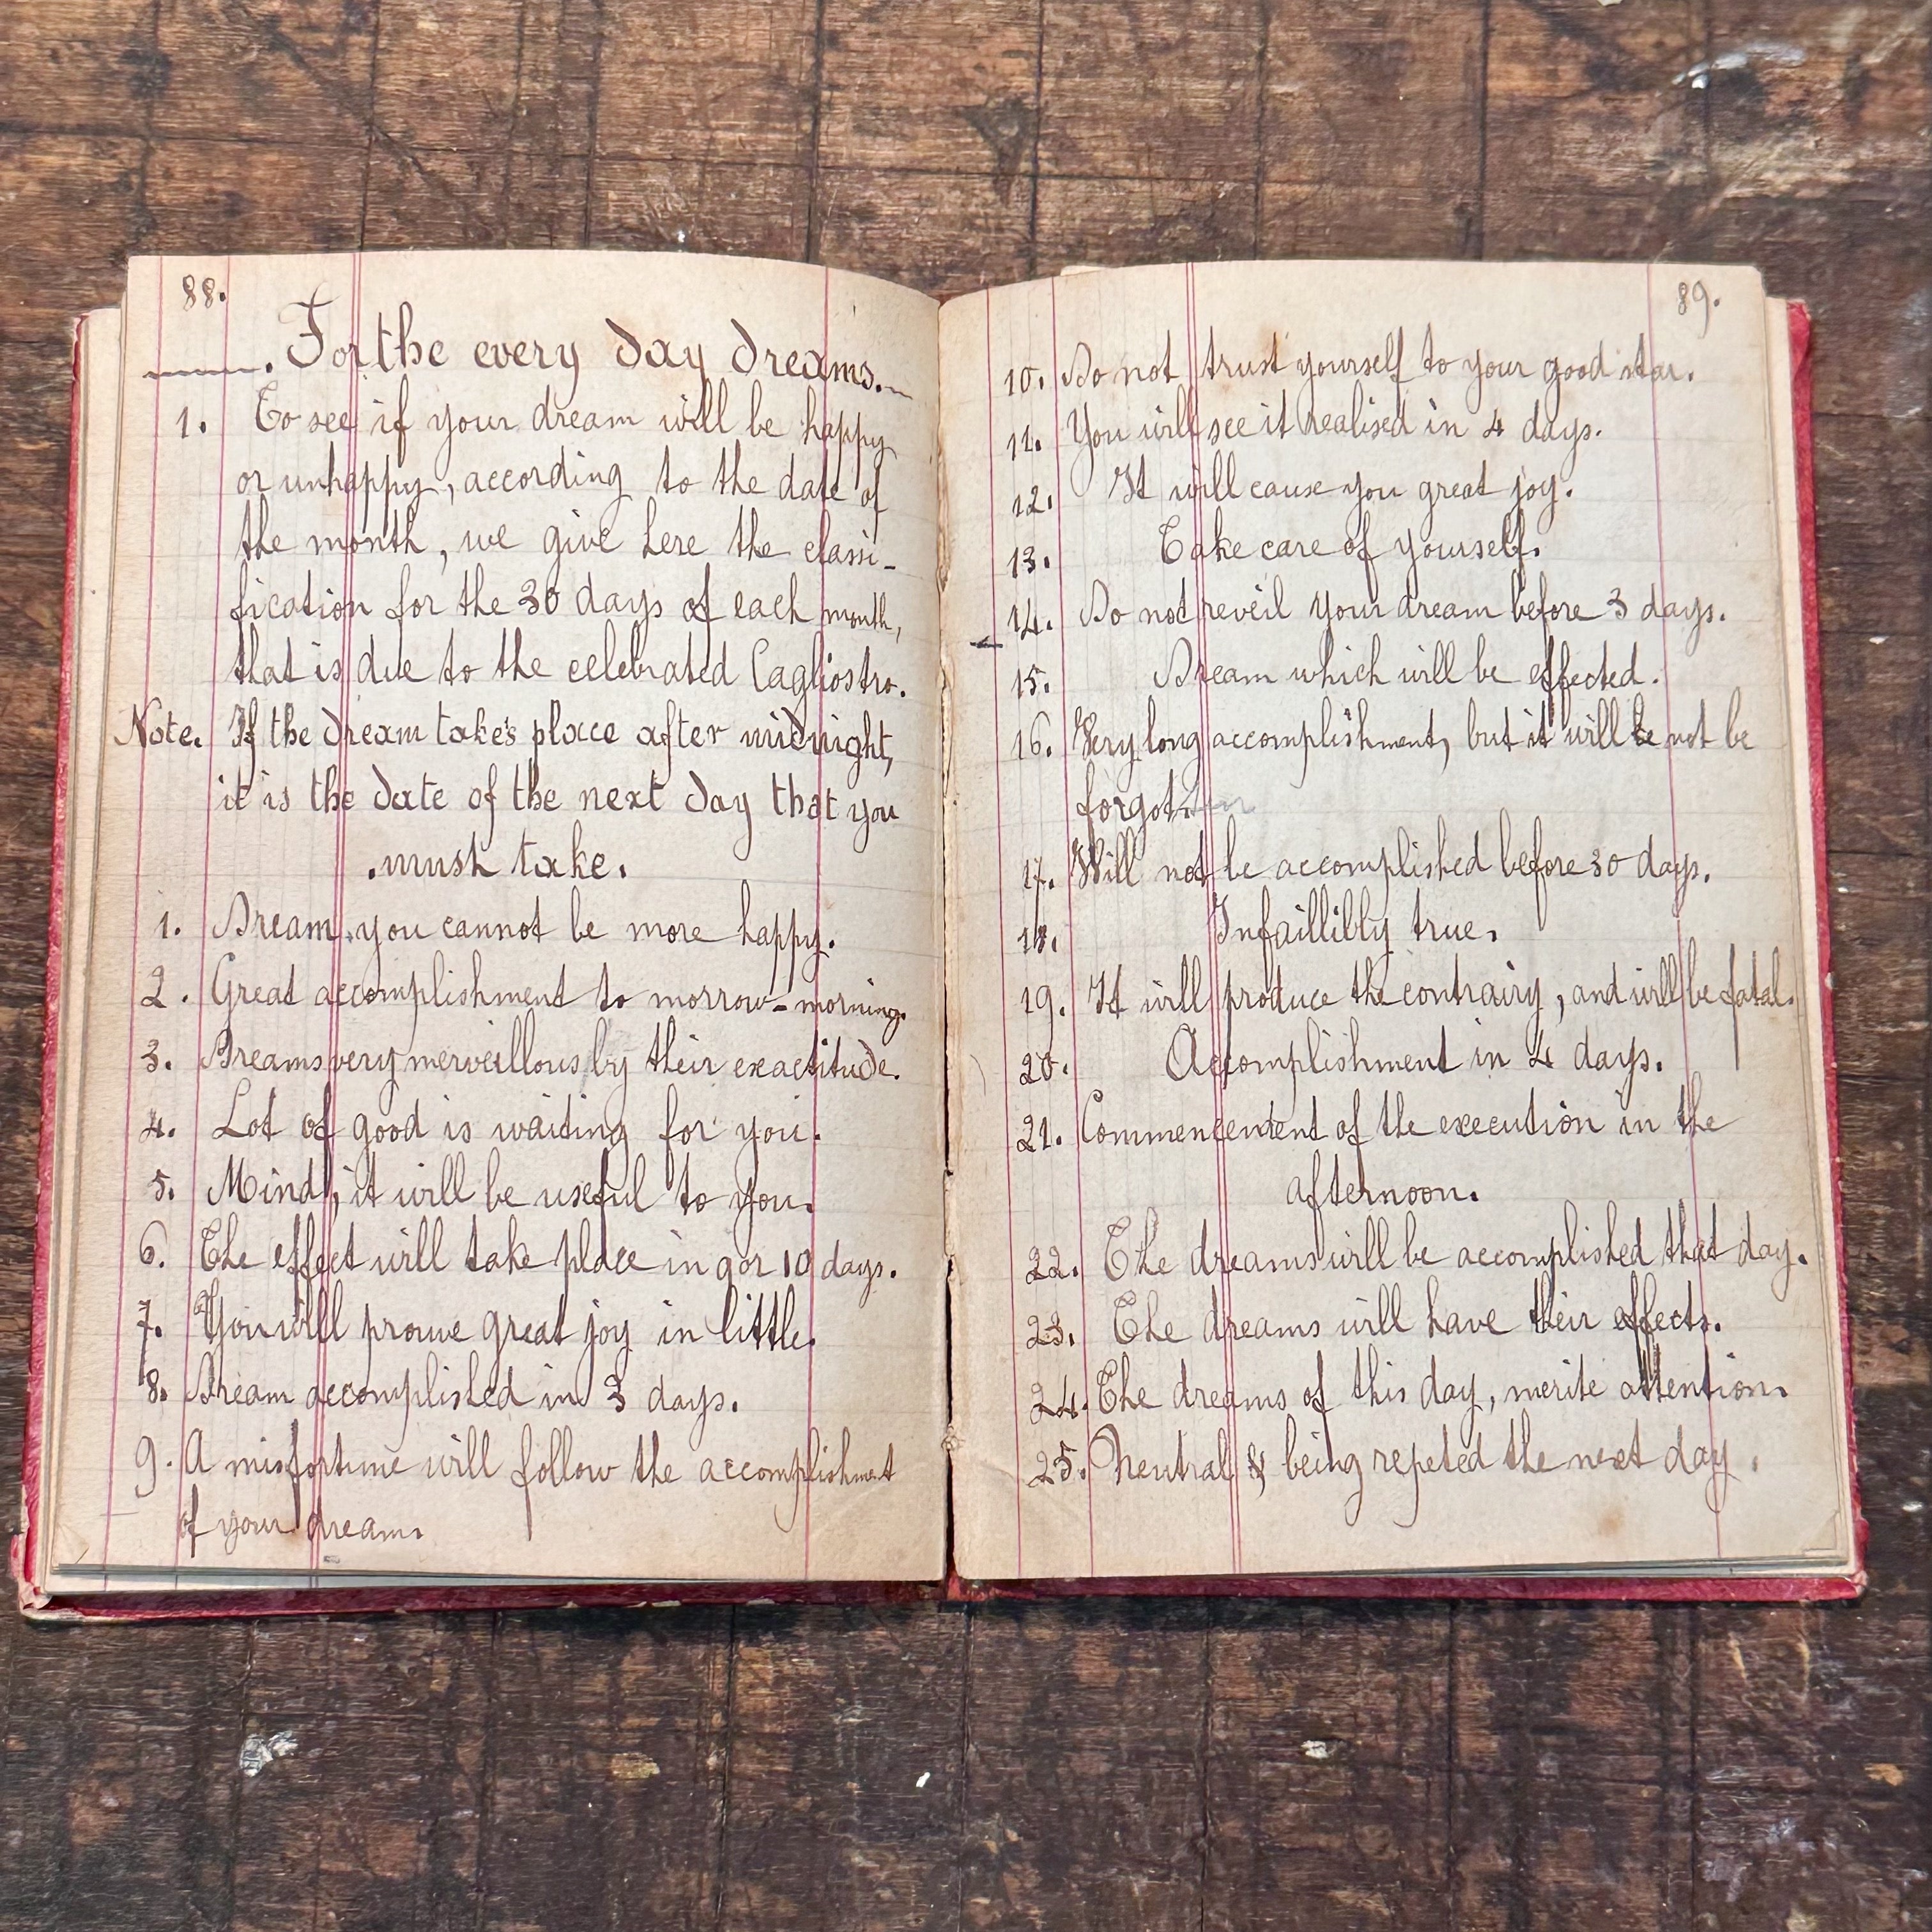 88.
For the every day dreams.
1. To see if your dream will be happy
or unhappy, according to the date of
the month, we give here the classi-
fication for the 30 days of each month,
that is due to the celebrated Cagliostro.
Note. If the dream take's place after midnight,
it is the date of the next day that you
must take.
1. Dream, you cannot be more happy.
2. Great accomplishment to morrow-morning.
3. Dreams very merveillous by their exactitude.
4. Lot of good is waiting for you.
5. Mind, it will be useful to you.
6. The effect will take place in 9 or 10 days.
7. You will prouve great joy in little.
8. Dream accomplished in 3 days.
9. A misfortune will follow the accomplishment
of your dream.
89.
10. Do not trust yourself to your good star.
11. You will see it realised in 4 days.
12. It will cause you great joy.
13. Take care of yourself.
14. Do not reveil your dream before 3 days.
15. Dream which will be effected.
16. Very long accomplishment, but it will be not be
forgotten
17. Will not be accomplished before 30 days.
18. Infaillibly true.
19. It will produce the contrairy, and will be fatal.
20. Accomplishment in 4 days.
21. Commencement of the execution in the
afternoon.
22. The dreams will be accomplished that day.
23. The dreams will have their effects.
24. The dreams of this day, merite attention.
25. Neutral & being repeted the next day.